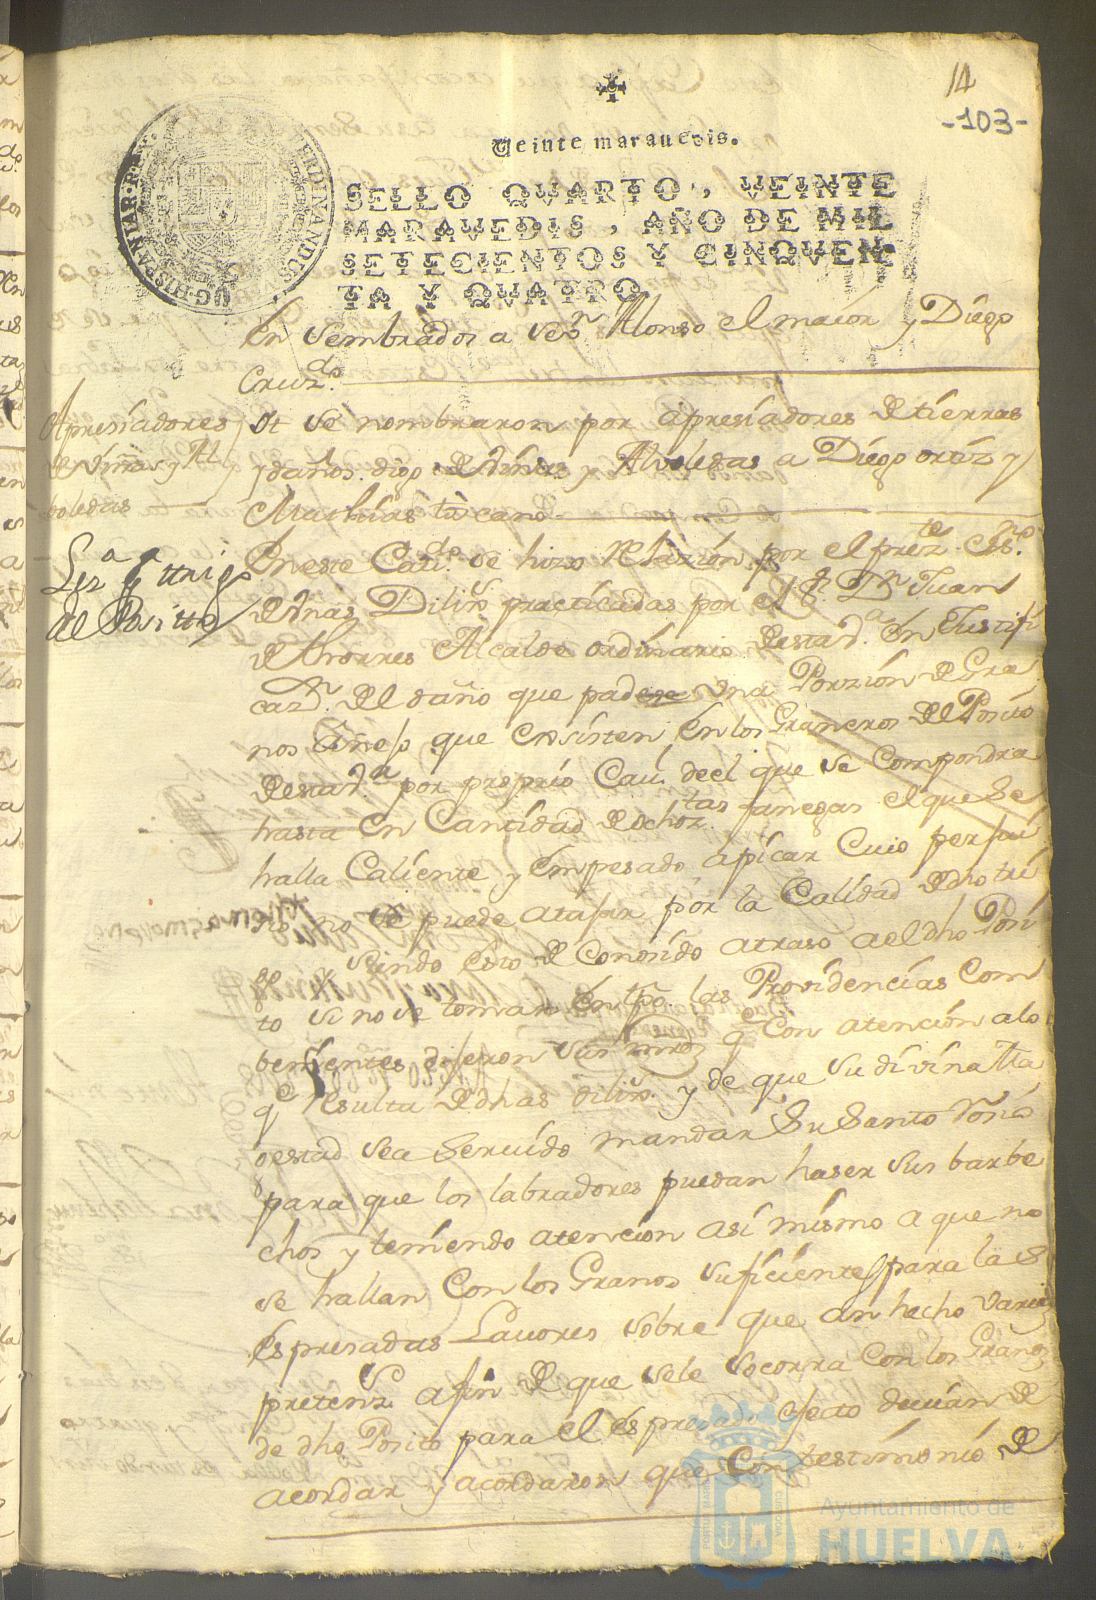 14
-103-
Veinte marauedis.
SELLO QVARTO, VEINTE
MARAVEDIS, AÑO DE MIL
SETECIENTOS Y CINQVEN-
TA Y QVATRO.
FERDINANDUS
HISPANIAR. R.
En Sembrados a Sevn Alonso el maior y Diego
Cruzdo
Apresiadores
de Viñas y Al
boledas
It se nombraron por apresiadores de tierras
y daños digo de Viñas y Alboledas a Diego ortiz y
Mathias tucano
Lizа
trigo
del Posito
En este Cavdo se hizo Relazion por el preste Essno
de Unas Dilixs practicadas por el Sr Dn Juan
de thorres Alcalde ordinario desta Va En Justifi
cazn del daño que padese Una Porzion de Gra
nos añejo que Ensisten En los Graneros del Posito
desta Va por proprio Cau del que se Compondra
hasta En Cantidad de ochoztas fanegas el que se
halla Caliente y Empesado apicar Cuio perjui
sio no se puede atajar por la Calidad de dho tri
go y siendo Esto de Conosido atraso a el dho Posi
to si no se toman En tpo las Providencias Com
benientes dijeron sus mrds qe Con atencion a lo
qe Resulta de dhas dilixs y de que su divina Ma
gestad sea Servido mandar Su Santo Rosio
para que los labradores puedan haser sus barbe
chos y teniendo atencion asi mismo a que no
se hallan Con los Granos suficientes para las
Espresadas Lavores sobre que an hecho varias
pretenzs a fin de que se le socorra Con los Granos
de dho Posito para el Espresado efecto devian de
acordar y acordaron que Con testimonio de
Ayuntamiento de
HUELVA